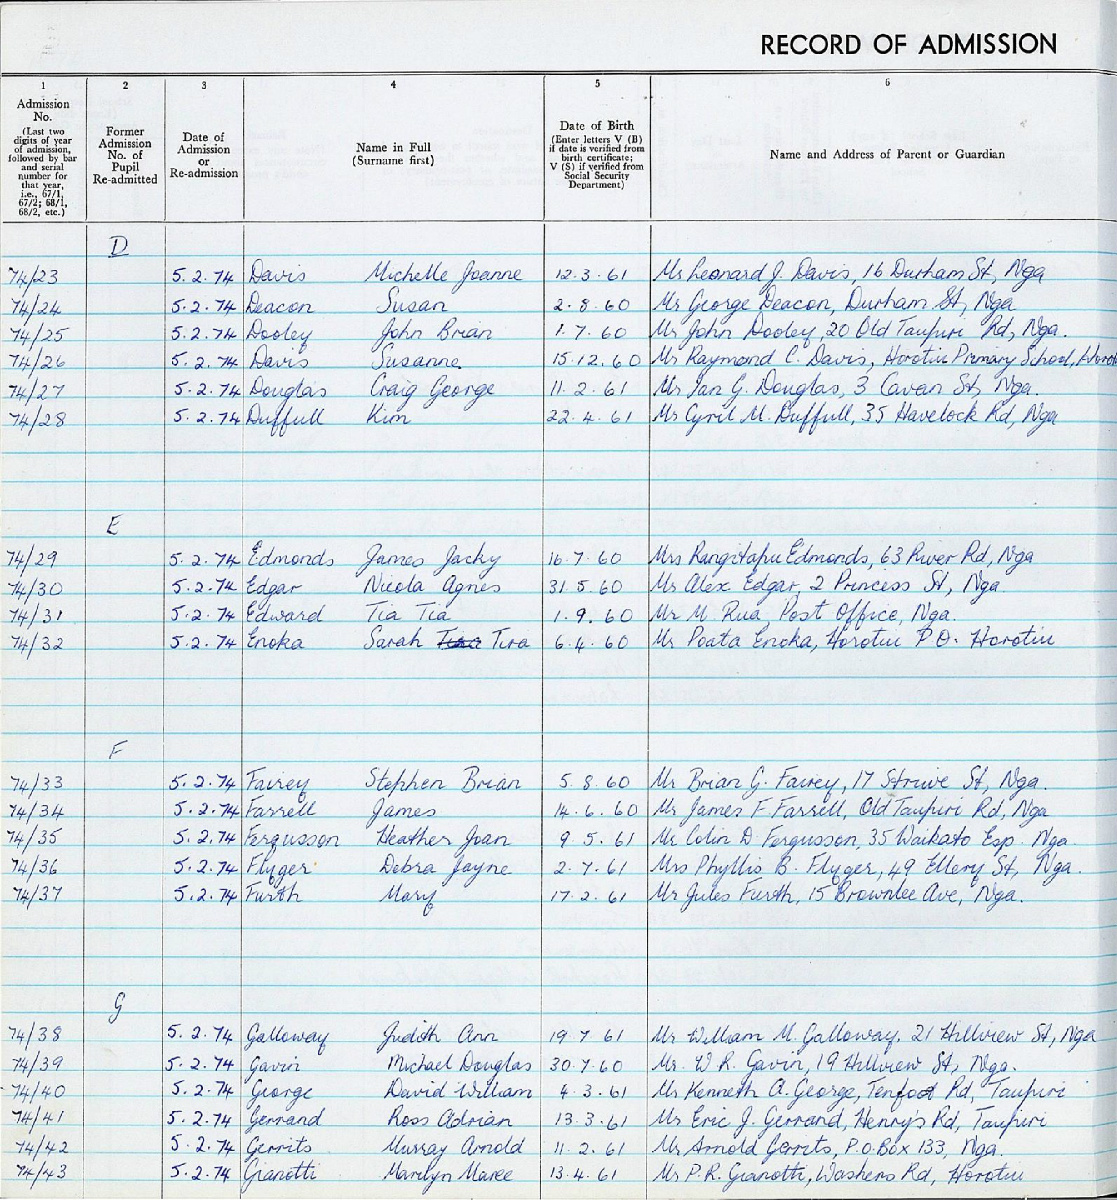 RECORD OF ADMISSION
1 2 3 4 5 6
Admission No. (Last two digits of year of admission, followed by bar and serial number for that year, i.e., 67/1, 67/2; 68/1, 68/2, etc.)
Former Admission No. of Pupil Re-admitted
Date of Admission or Re-admission
Name in Full (Surname first)
Date of Birth (Enter letters V (B) if date is verified from birth certificate; V (S) if verified from Social Security Department)
Name and Address of Parent or Guardian
D
74/23 5.2.74 Davis Michelle Joanne 12.3.61 Mr Leonard J. Davis, 16 Durham St, Nga
74/24 5.2.74 Deacon Susan 2.8.60 Mr George Deacon, Durham St, Nga
74/25 5.2.74 Dooley John Brian 1.7.60 Mr John Dooley, 20 Old Taupiri Rd, Nga.
74/26 5.2.74 Davis Susanne 15.12.60 Mr Raymond C. Davis, Horotiu Primary School,
74/27 5.2.74 Douglas Craig George 11.2.61 Mr Ian G. Douglas, 3 Cavan St, Nga.
74/28 5.2.74 Duffull Kim 22.4.61 Mr Cyril M. Duffull, 35 Havelock Rd, Nga
E
74/29 5.2.74 Edmonds James Jacky 16.7.60 Mrs Rangitapu Edmonds, 63 River Rd, Nga
74/30 5.2.74 Edgar Nicola Agnes 31.5.60 Mr Alex Edgar, 2 Princess St, Nga
74/31 5.2.74 Edward Tia Tia 1.9.60 Mr M. Rua, Post Office, Nga.
74/32 5.2.74 Enoka Sarah Tira 6.4.60 Mr Poata Enoka, Horotiu P.O. Horotiu
F
74/33 5.2.74 Fairey Stephen Brian 5.8.60 Mr Brian G. Fairey, 17 Struve St, Nga.
74/34 5.2.74 Farrell James 14.6.60 Mr James F Farrell, Old Taupiri Rd, Nga
74/35 5.2.74 Fergusson Heather Joan 9.5.61 Mr Colin D. Fergusson, 35 Waikato Esp. Nga
74/36 5.2.74 Flyger Debra Jayne 2.7.61 Mrs Phyllis B. Flyger, 49 Ellery St, Nga.
74/37 5.2.74 Furth Mary 17.2.61 Mr Jules Furth, 15 Brownlee Ave, Nga.
G
74/38 5.2.74 Galloway Judith Ann 19.7.61 Mr William M. Galloway, 21 Hillview St, Nga
74/39 5.2.74 Gavin Michael Douglas 30.7.60 Mr. W.R. Gavin, 19 Hillview St, Nga.
74/40 5.2.74 George David William 4.3.61 Mr Kenneth A. George, Tenfoot Rd, Taupiri
74/41 5.2.74 Gerrand Ross Adrian 13.3.61 Mr Eric J. Gerrand, Henry's Rd, Taupiri
74/42 5.2.74 Gerrits Murray Arnold 11.2.61 Mr Arnold Gerrits, P.O. Box 133, Nga.
74/43 5.2.74 Gianotti Marilyn Maree 13.4.61 Mr P.R. Gianotti, Washers Rd, Horotiu